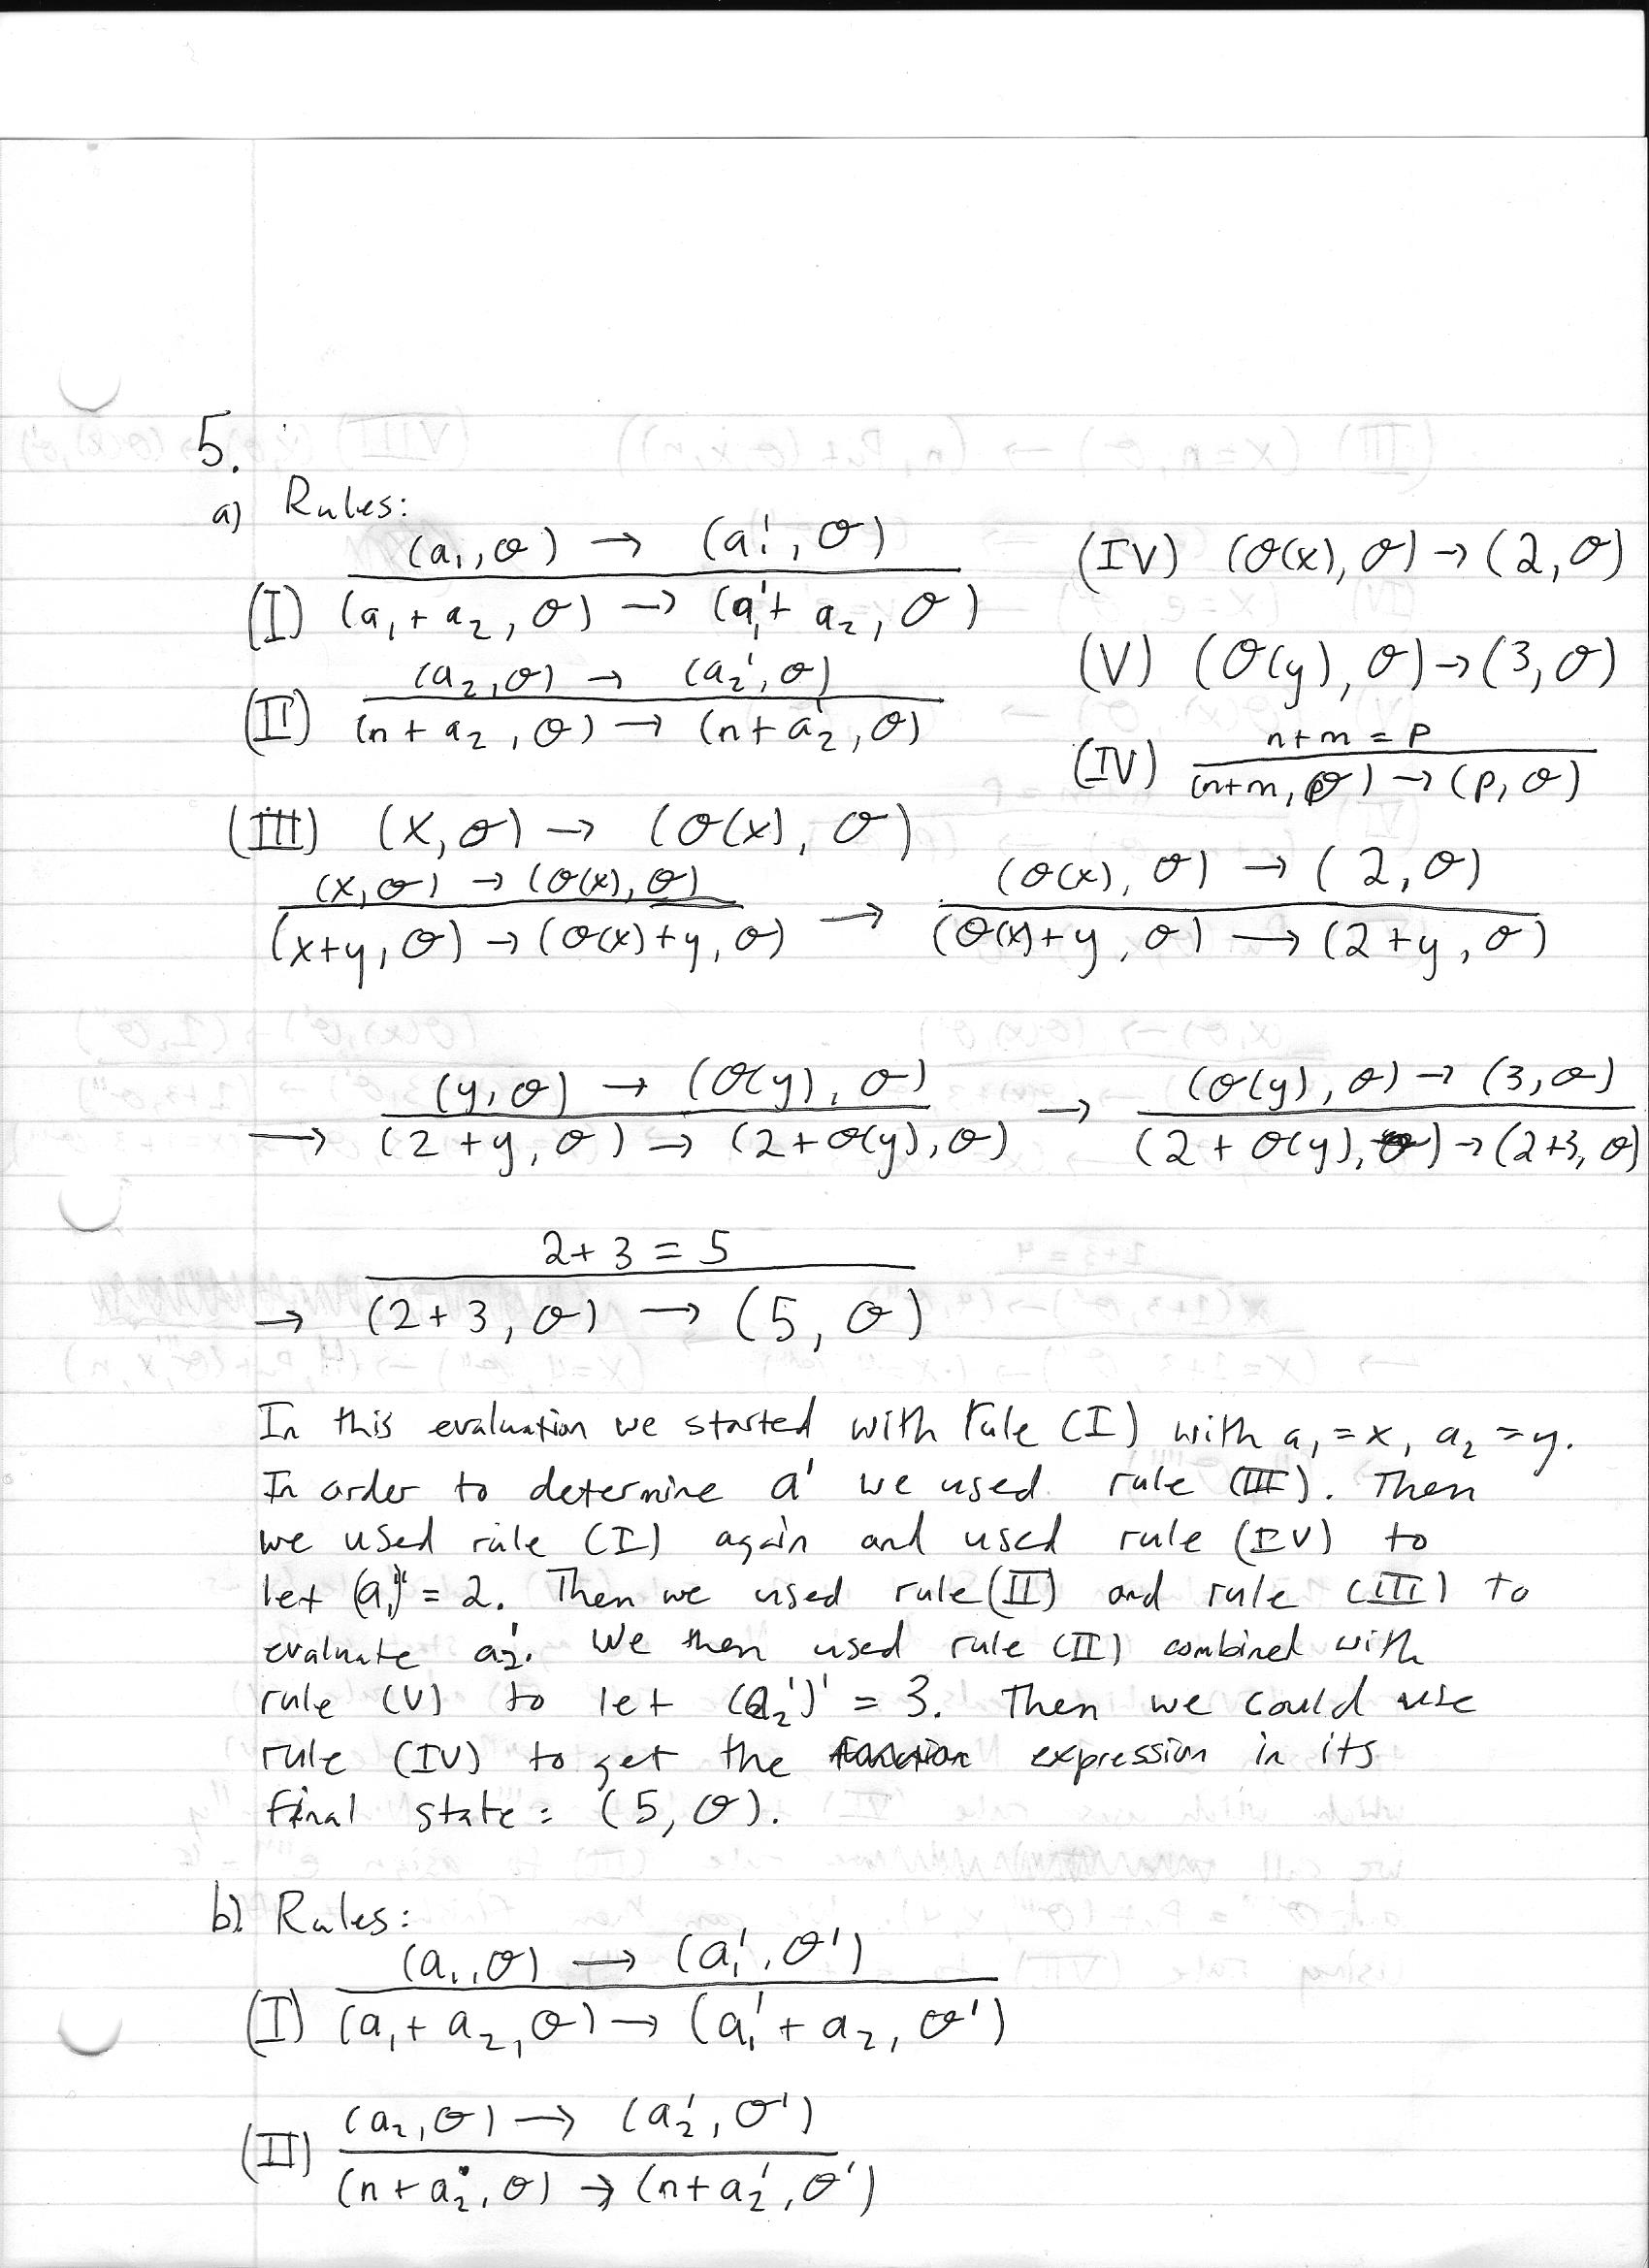 5.
a) Rules:
(I) (a₁, σ) → (a₁', σ) / (a₁ + a₂, σ) → (a₁' + a₂, σ)
(II) (a₂, σ) → (a₂', σ) / (n + a₂, σ) → (n + a₂', σ)
(III) (x, σ) → (σ(x), σ)
(IV) (σ(x), σ) → (2, σ)
(V) (σ(y), σ) → (3, σ)
(IV) n+m = p / (n+m, σ) → (p, σ)
(x, σ) → (σ(x), σ) / (x+y, σ) → (σ(x)+y, σ) → (σ(x), σ) → (2, σ) / (σ(x)+y, σ) → (2+y, σ)
→ (y, σ) → (σ(y), σ) / (2+y, σ) → (2+σ(y), σ) → (σ(y), σ) → (3, σ) / (2+σ(y), σ) → (2+3, σ)
→ 2+3 = 5 / (2+3, σ) → (5, σ)
In this evaluation we started with rule (I) with a₁ = x, a₂ = y.
In order to determine a' we used rule (III). Then
we used rule (I) again and used rule (IV) to
let (a₁')' = 2. Then we used rule (II) and rule (III) to
evaluate a₂'. We then used rule (II) combined with
rule (V) to let (a₂')' = 3. Then we could use
rule (IV) to get the expression in its
final state: (5, σ).
b) Rules:
(I) (a₁, σ) → (a₁', σ') / (a₁ + a₂, σ) → (a₁' + a₂, σ')
(II) (a₂, σ) → (a₂', σ') / (n + a₂, σ) → (n + a₂', σ')